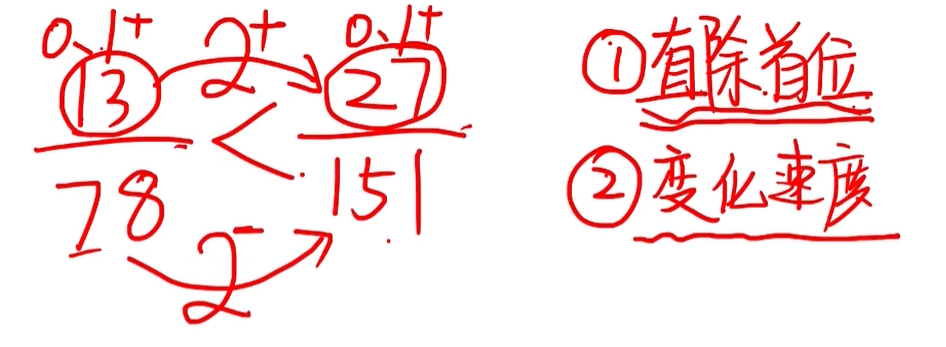 0.1+ 2+ 0.1+
13 < 27
78 151
2-
①直除首位
②变化速度